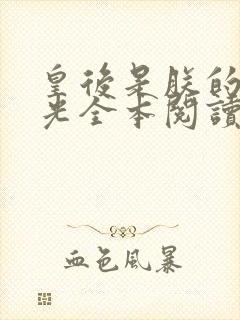 皇後是朕的
光全本閱讀
血色風暴